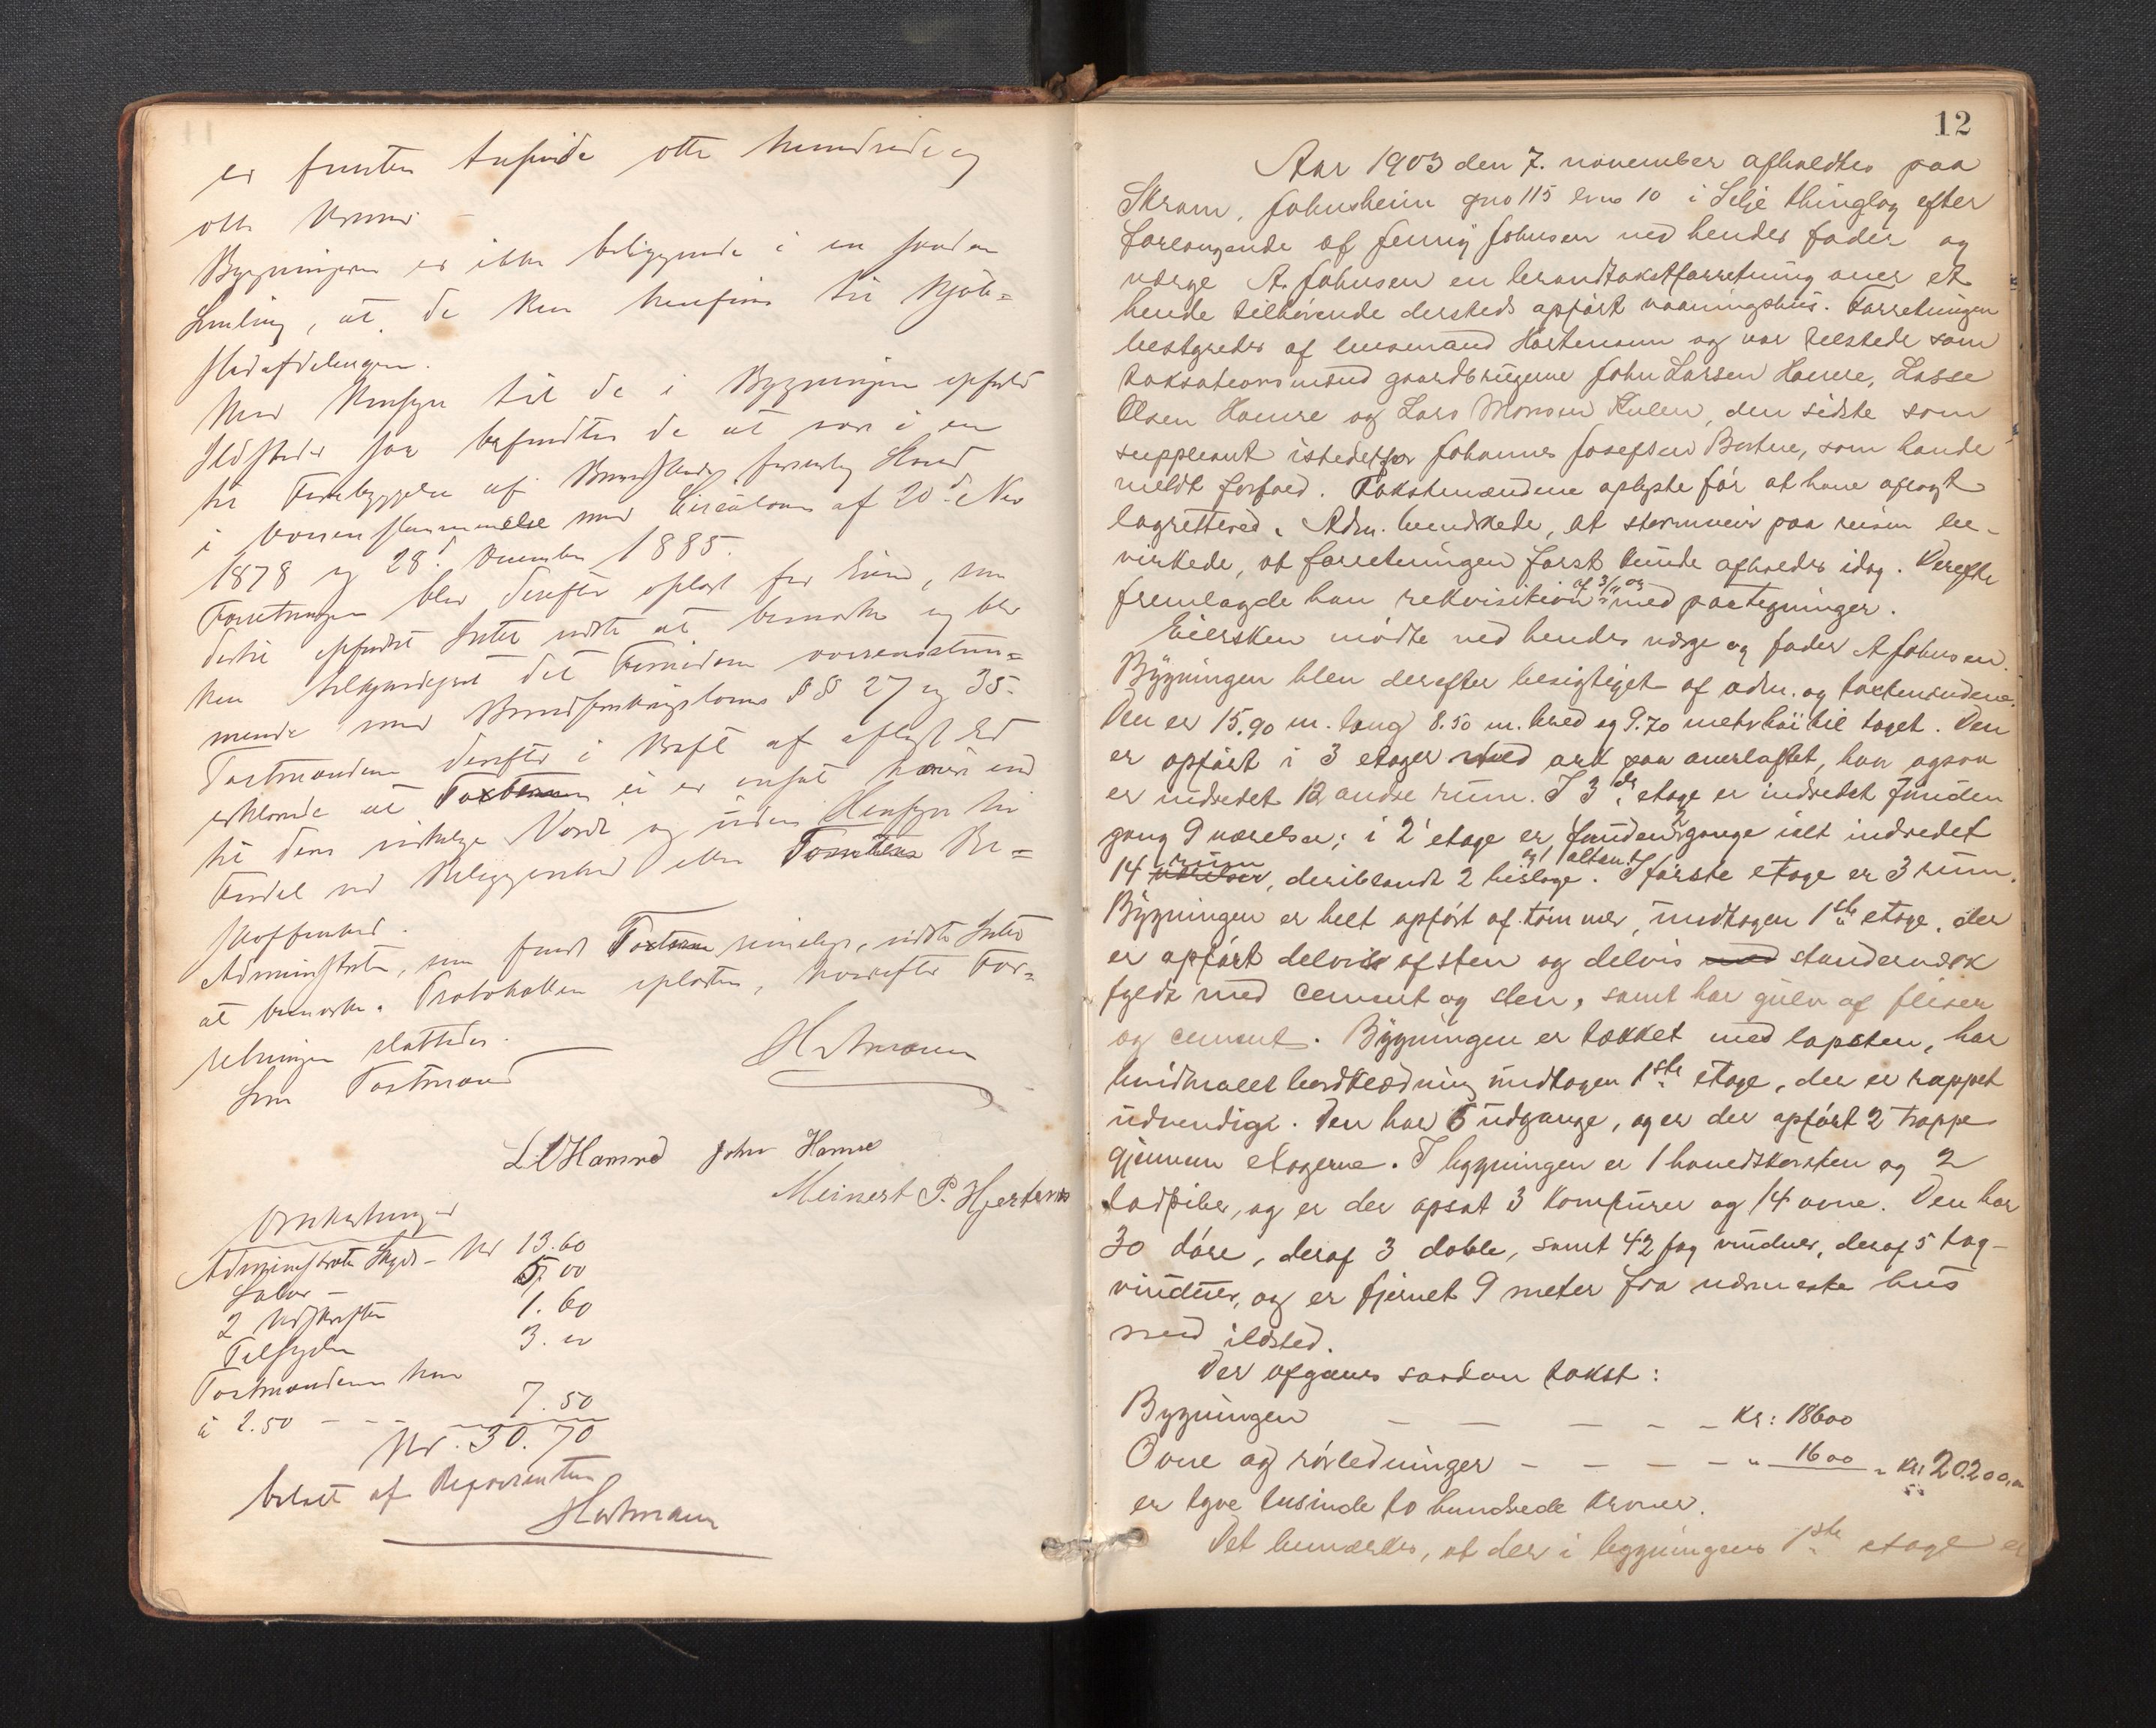 er femten tusinde otte hundrede og
otte Kroner.
Bygningerne er ikke beliggende i en saadan
Samling, at de kan henføres til Kjøb=
stadafdelingen.
Med Hensyn til de i Bygningen opførte
Ildsteder saa befandtes de at være i en
til Forebyggelse af Brandskade forsvarlig Stand
i Overensstemmelse med Circulære af 20de Nov
1878 og 28d December 1885.
Forretningen blev derefter oplæst for Eieren, som
dertil Intet vidste at bemærke og blev
han tilkjendegivet det Fornødne overensstem=
mende med Brandforsikringslovens §§ 27 og 35.
Taxtmændene derefter i Kraft af aflagt Ed
erklærede at Taxten ei er ansat høiere end
til dens virkelige Værdi og uden Hensyn til
Fordel ved Beliggenhed eller Tomtens Be=
skaffenhed.
Administrator, som fandt Taxten rimelig, vidste Intet
at bemærke. Protokollen oplæstes, hvorefter For=
retningen sluttedes.
Hartmann
Som Taxtmænd
L L Hamre John Hamre
Meinert P. Hjertenes
Omkostninger
Administrator Skyds - Kr 13.60
Salær - 5.00
2 Udskrifter 1.60
Tilsyn 3. 00
Taxtmændene hver
à 2.50 - - - 7.50
Kr. 30.70
betalt af Reqvirenten
Hartmann
12
Aar 1903 den 7. november afholdtes paa
Skram, Johnsheim gno 115 bno 10 i Selje thinglag efter
forlangende af Jenny Johnsen ved hendes fader og
værge A. Johnsen en brandtakstforretning over et
hende tilhørende dersteds opført vaaningshus. Forretningen
bestyredes af lensmand Hartmann og var tilstede som
taksationsmænd gaardbrugerne John Larsen Hamre, Lasse
Olsen Hamre og Lars Monsen Kulen, den sidste som
suppleant istedetfor Johannes Josefsen Bortne, som havde
meldt forfald. Takstmændene oplyste før at have aflagt
lagretteed. Adm. bemærkede, at stormveir paa reisen be-
virkede, at forretningen først kunde afholdes idag. Derefter
fremlagde han rekvisition af 3/11 03 med paategninger.
Eiersken mødte ved hendes værge og fader A Johnsen.
Bygningen blev derefter besigtiget af adm. og taxtmændene.
Den er 15,90 m. lang 8.50 m. bred og 9.70 metr høi til taget. Den
er opført i 3 etager med ark paa overloftet, hvor ogsaa
er indredet 12 andre rum. I 3die etage er indredet foruden
gang 9 værelser; i 2' etage er foruden 2 gange ialt indredet
14 værelser rum, deriblandt 2 bislage og 1 altan. I første etage er 3 rum.
Bygningen er helt opført af tømmer, undtagen 1ste etage, der
er opført delvis af sten og delvis med standerværk
fyldt med cement og sten, samt har gulv af fliser
og cement. Bygningen er tækket med lapsten, har
hvidmalet bordklædning undtagen 1ste etage, der er rappet
udvendigt. Den har 6 udgange, og er der opført 2 trappe
gjennem etagerne. I bygningen er 1 hovedskorsten og 2
ladpiber, og er der opsat 3 komfurer og 14 ovne. Den har
30 døre, deraf 3 doble, samt 42 fag vinduer, deraf 5 tag-
vinduer, og er fjernet 9 meter fra nærmeste hus
med ildsted.
Der afgaves saadan takst:
Bygningen - - - - - Kr: 18600
Ovne og rørledninger - - - - " 1600 " Kr: 20.200,00
er tyve tusinde to hundrede kroner.
Det bemærkes, at der i bygningens 1ste etage er